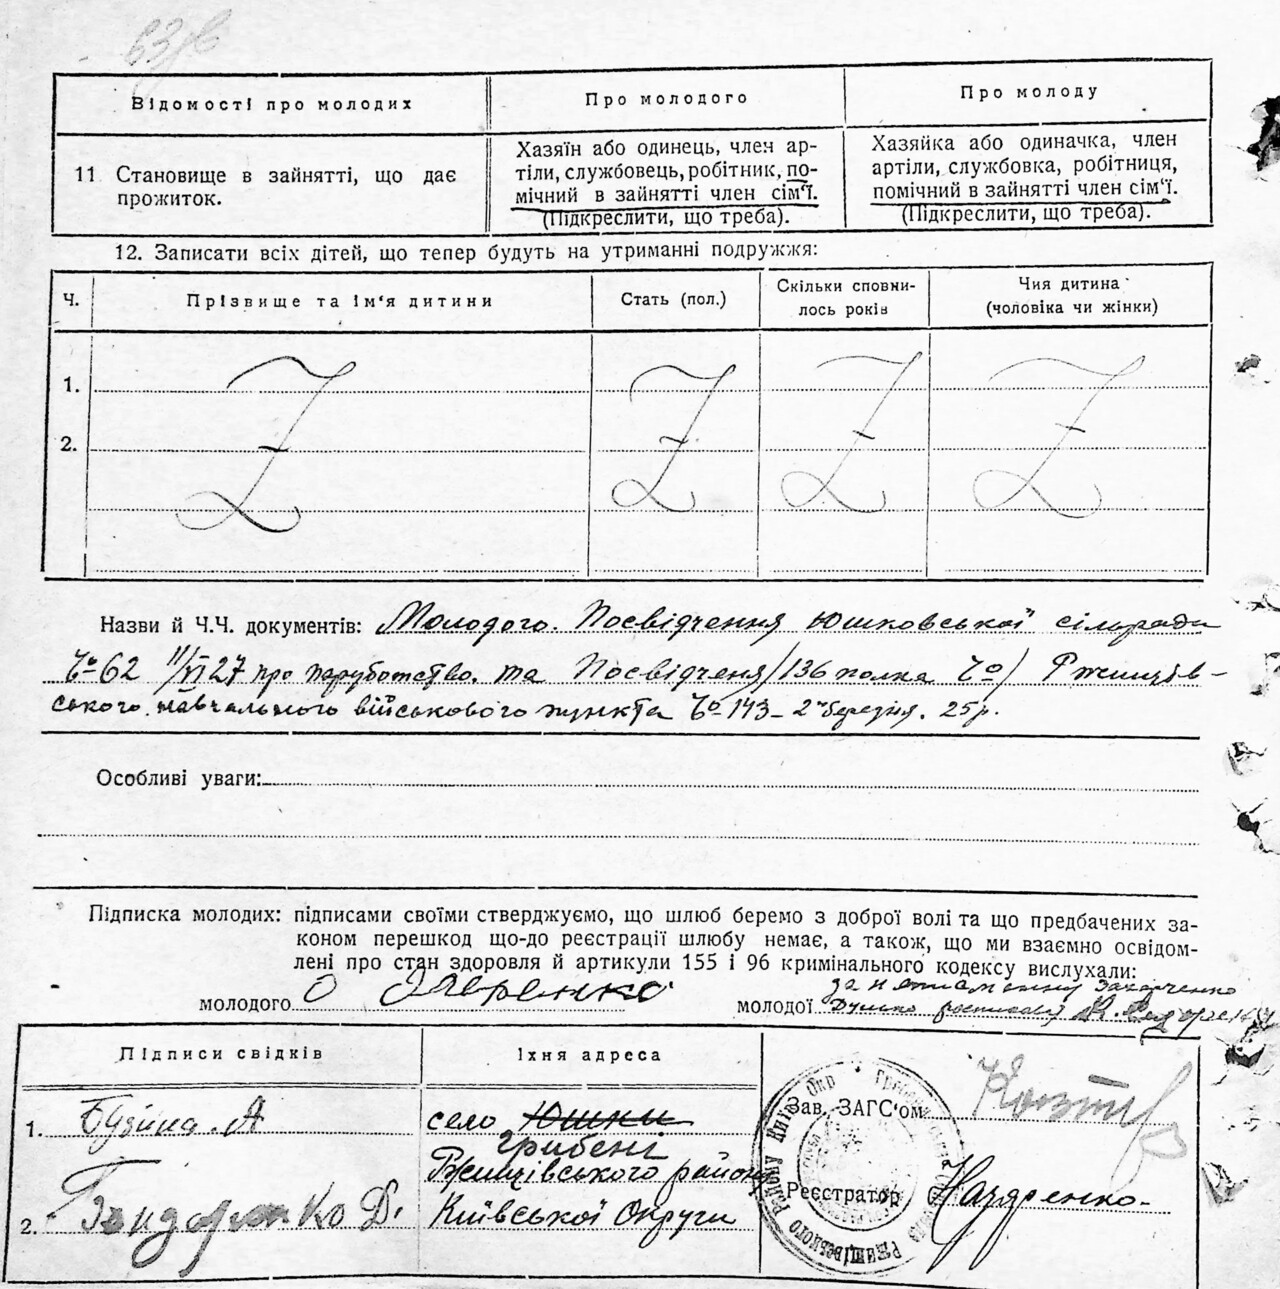 Відомості про молодих
Про молодого
Про молоду
11 Становище в зайнятті, що дає
прожиток.
Хазяїн або одинець, член ар-
тіли, службовець, робітник, по-
мічний в зайнятті член сім'ї.
(Підкреслити, що треба).
Хазяйка або одиначка, член
артіли, службовка, робітниця,
помічний в зайнятті член сім'ї.
(Підкреслити, що треба).
12. Записати всіх дітей, що тепер будуть на утриманні подружжя:
Ч.
Прізвище та ім'я дитини
Стать (пол.)
Скільки сповни-
лось років
Чия дитина
(чоловіка чи жінки)
1.
2.
Назви й Ч.Ч. документів: Молодого. Посвідчення Юшковської сільради
Чо 62 11/VI 27 про паруботство. та Посвідченя /136 полка Чо/ Ржищів-
ського навчального військового пункта Чо 143 – 2 березня. 25р.
Особливі уваги:
Підписка молодих: підписами своїми стверджуємо, що шлюб беремо з доброї волі та що предбачених за-
коном перешкод що-до реєстрації шлюбу немає, а також, що ми взаємно освідом-
лені про стан здоровля й артикули 155 і 96 кримінального кодексу вислухали:
молодого
молодої за неписьменну Захарченко
Підписи свідків
Їхня адреса
1. Бузина А
село Юшки
грибені
Ржищівського району
2. Бондаренко Д.
Київської Округи
Зав. ЗАГС'ом
Реєстратор